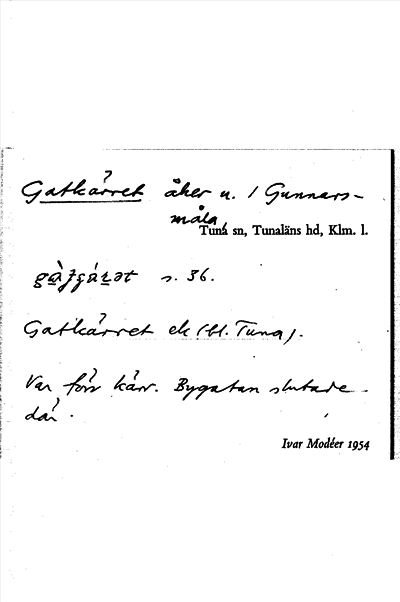 Gatkärret åker n. / Gunnars-
måla,
Tuna sn, Tunaläns hd, Klm. l.
s. 36.
Gatkärret ek (bl. Tuna).
Var förr kärr. Bygatan slutade
där.
Ivar Modéer 1954